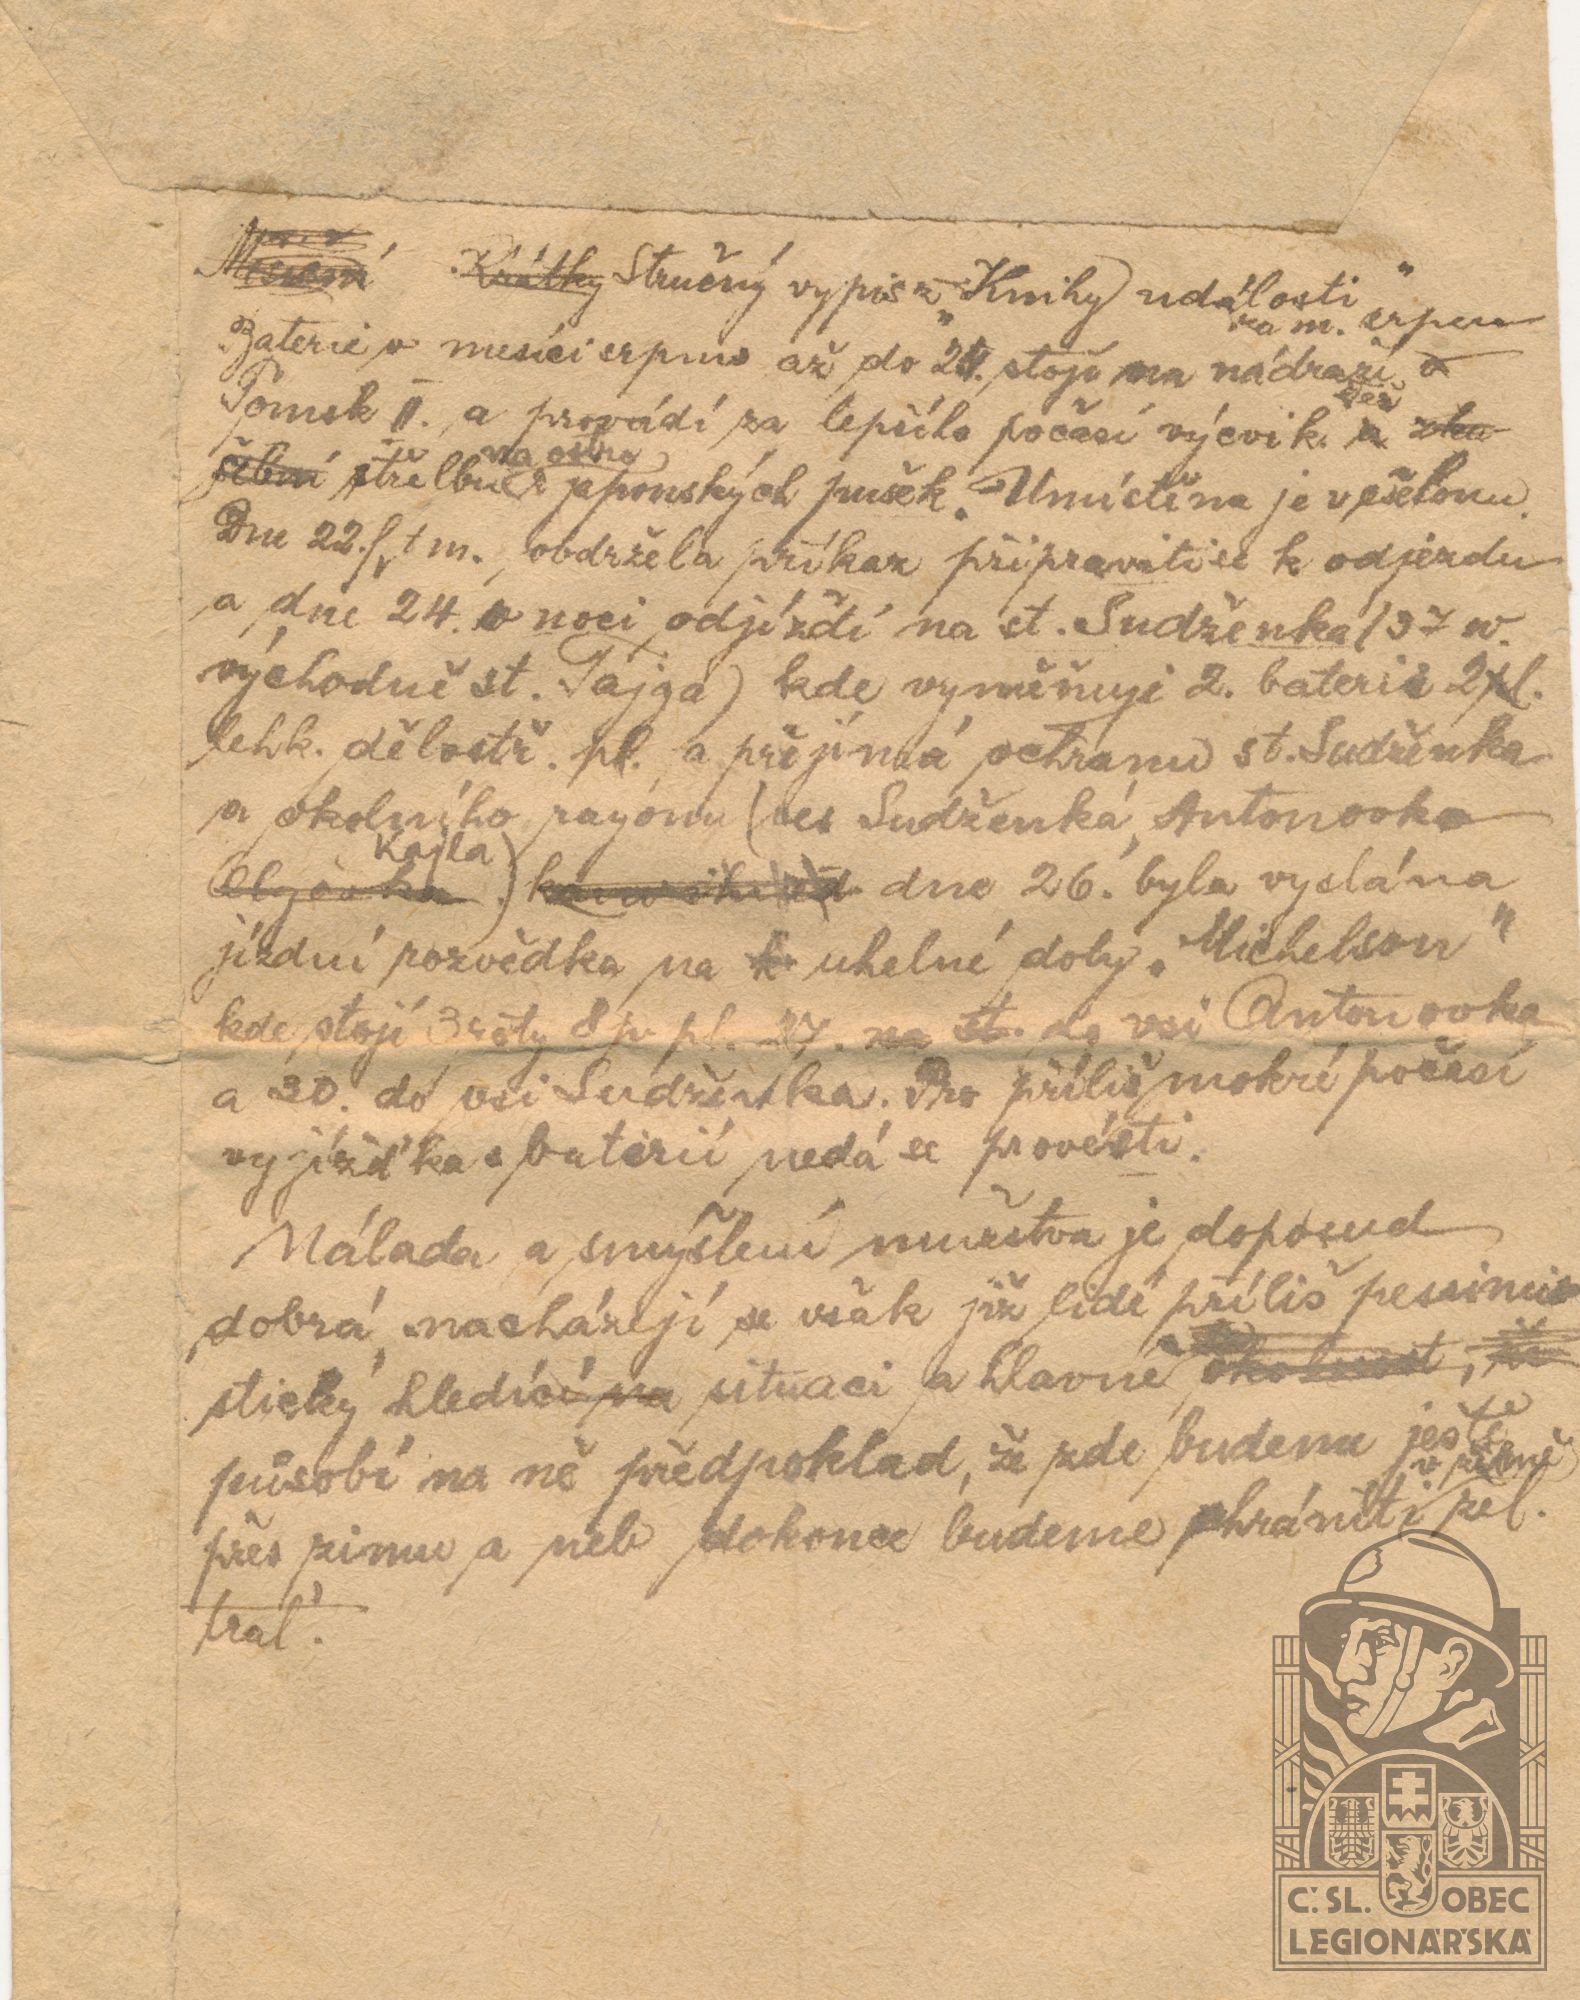 Krátký Stručný výpis z „Knihy událostí“
za m. srpen
Baterie v mesíci srpnu až do 24. stojí na nádraží
Tomsk II. a provádí za lepšího počasí výcvik a
na ostro
střelbu z japonských pušek. Umístěna je v ešelonu.
Dne 22./ t m. obdržela příkaz připraviti se k odjezdu
a dne 24. v noci odjíždí na st. Sudženka (37 w.
východně st. Tajga) kde vyměňuje 2. baterii 2pl.
lehk. dělostř. pl. a přejímá ochranu st. Sudženka
a okolního rayónu (ves Sudženka, Antonovka
Kajla)
Olgovka.) dne 26. byla vyslána
jízdní rozvědka na k uhelné doly „Michelson“
kde stojí 3 roty 8 p pl. 27. na st. do vsi Antonovka
a 30. do vsi Sudženka. Pro příliš mokré počasí
vyjížďka s baterií nedá se provésti.
Nálada a smýšlení mužstva je doposud
dobrá, nacházejí se však již lidé příliš pessimi-
sticky hledící na situaci a hlavně okolnost, že
působí na ně předpoklad, že zde budeme ještě
v zimě
přes zimu a neb dokonce budeme chrániti žel.
trať.
Č.SL. OBEC
LEGIONÁŘSKÁ